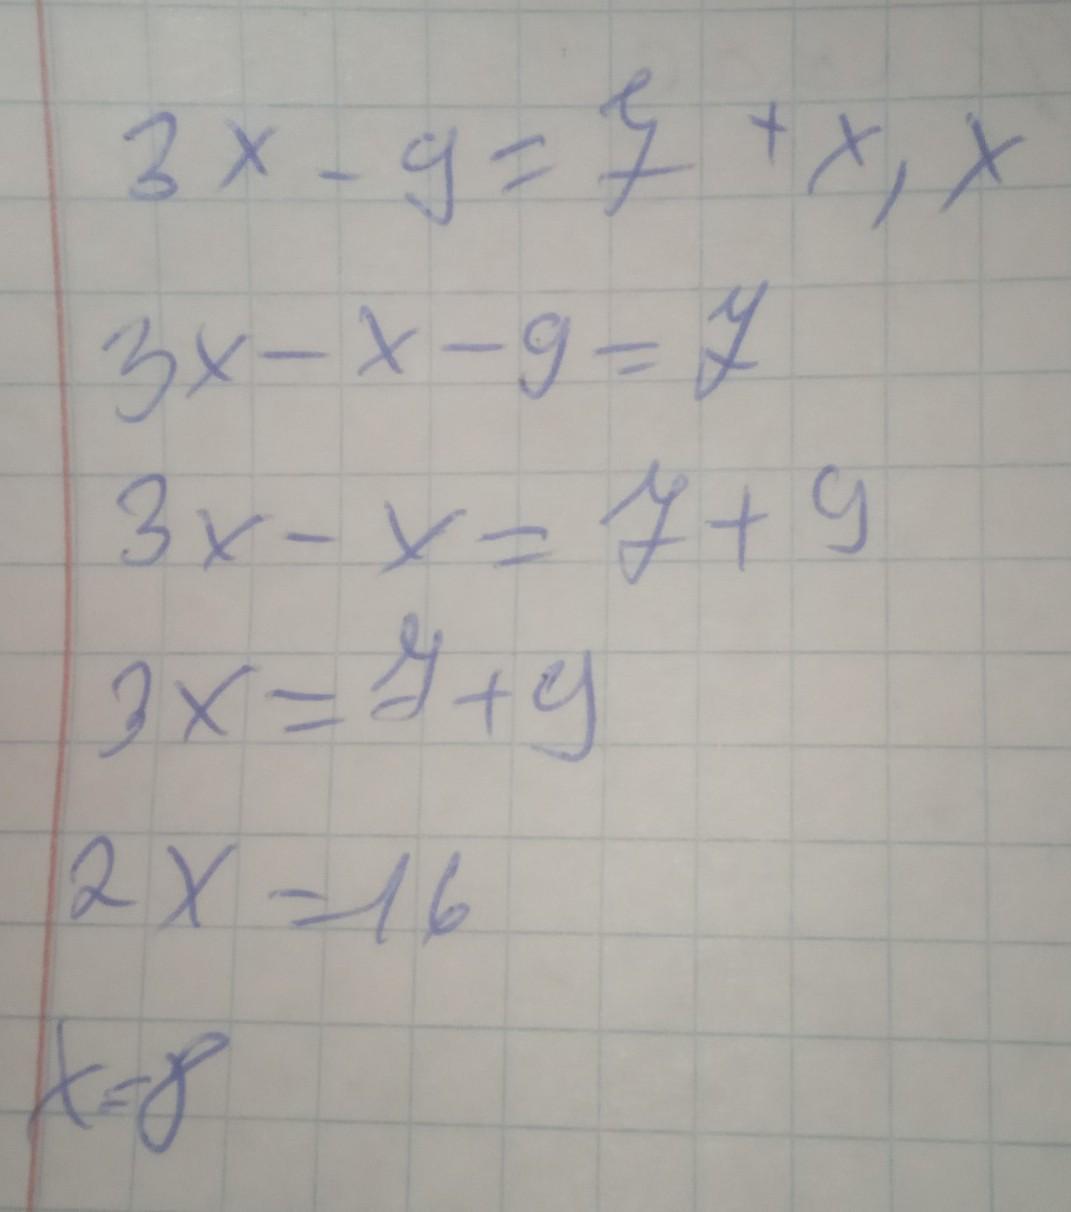 3x - 9 = 7 + x, x
3x - x - 9 = 7
3x - x = 7 + 9
3x = 7 + 9
2x = 16
x = 8